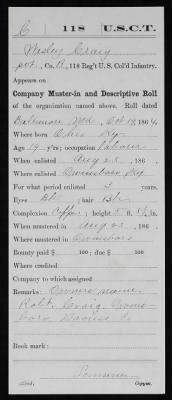 C | 118 | U.S.C.T.
Wesley Craig
Pvt., Co. B, 118 Reg't U.S. Col'd Infantry.
Appears on
Company Muster-in and Descriptive Roll
of the organization named above. Roll dated
Baltimore Md. Oct 19, 1864.
Where born Ohio Ky.
Age 19 y'rs; occupation Laborer
When enlisted Aug 23, 186 .
Where enlisted Owensboro Ky
For what period enlisted 3 years.
Eyes Blk; hair Blk
Complexion Copp; height 5 ft. in.
When mustered in Aug 23, 186 .
Where mustered in Owensboro
Bounty paid $ 100; due $ 100
Where credited
Company to which assigned
Remarks: Owners name
Robt. Craig Owens-
boro Daviess Co.
Book mark:
Copyist.